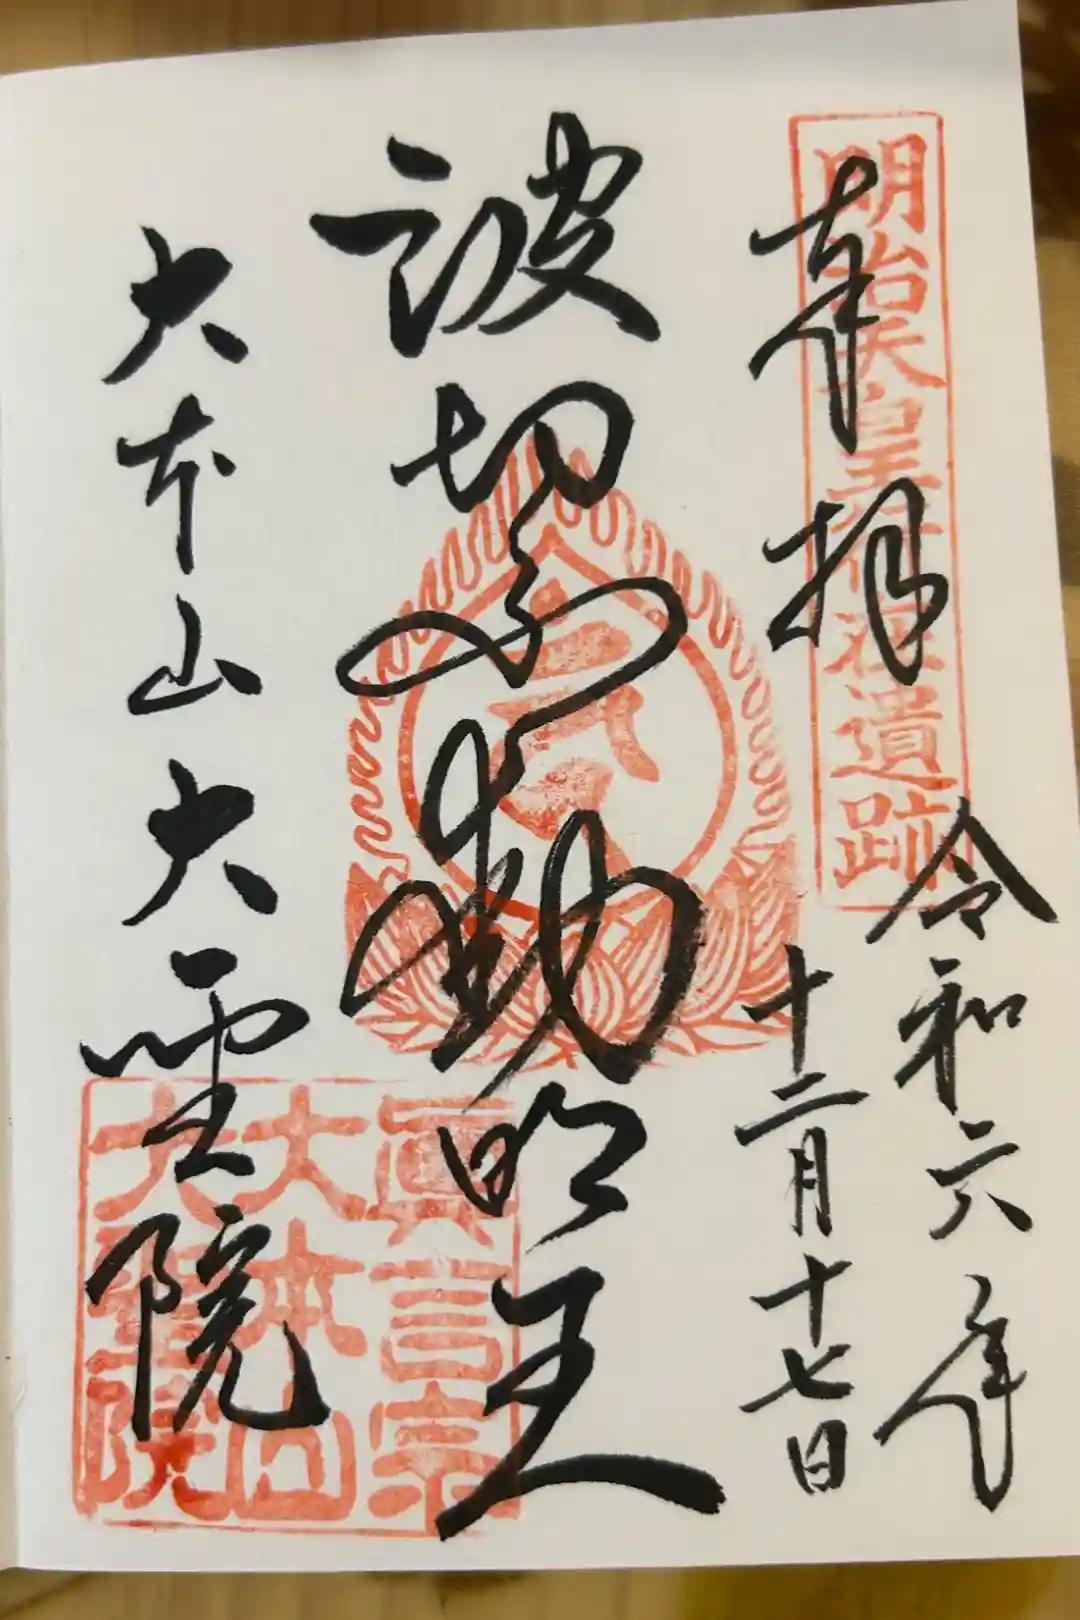 明治天皇行在遺跡
奉拝
令和六年
十二月十七日
波切不動明王
大本山大聖院
眞言宗
大本山
大聖院